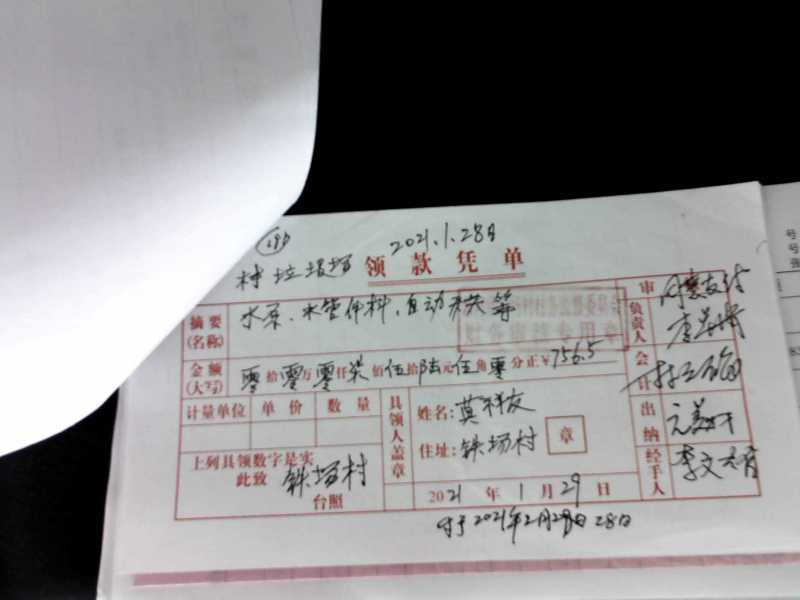 2021.1.28日
村垃圾场 领款凭单
摘要(名称) 水泵、水管伸料、自动开关等
财务审核专用章
金额(大写) 零拾零万零仟柒佰伍拾陆元伍角零分正¥756.5
计量单位 单价 数量
具领人盖章
姓名:莫科友
住址:铁场村 章
上列具领数字是实
此致 铁场村
台照
2021年1月29日
审 同意支付
负责人
会计
出纳
经手人 李文
付于2021年2月 28日